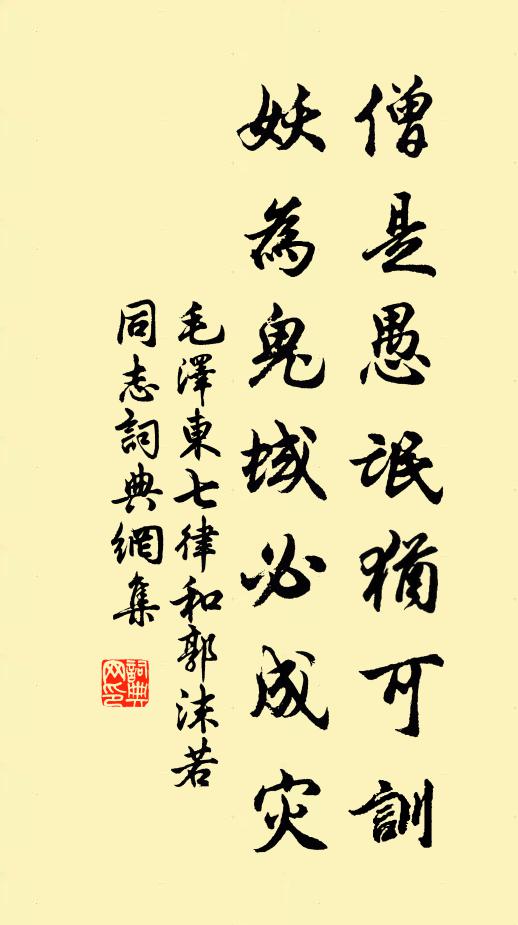 僧是愚氓猶可訓
妖為鬼域必成灾
毛澤東七律和郭沫若
同志詞典網集
詞典
网印